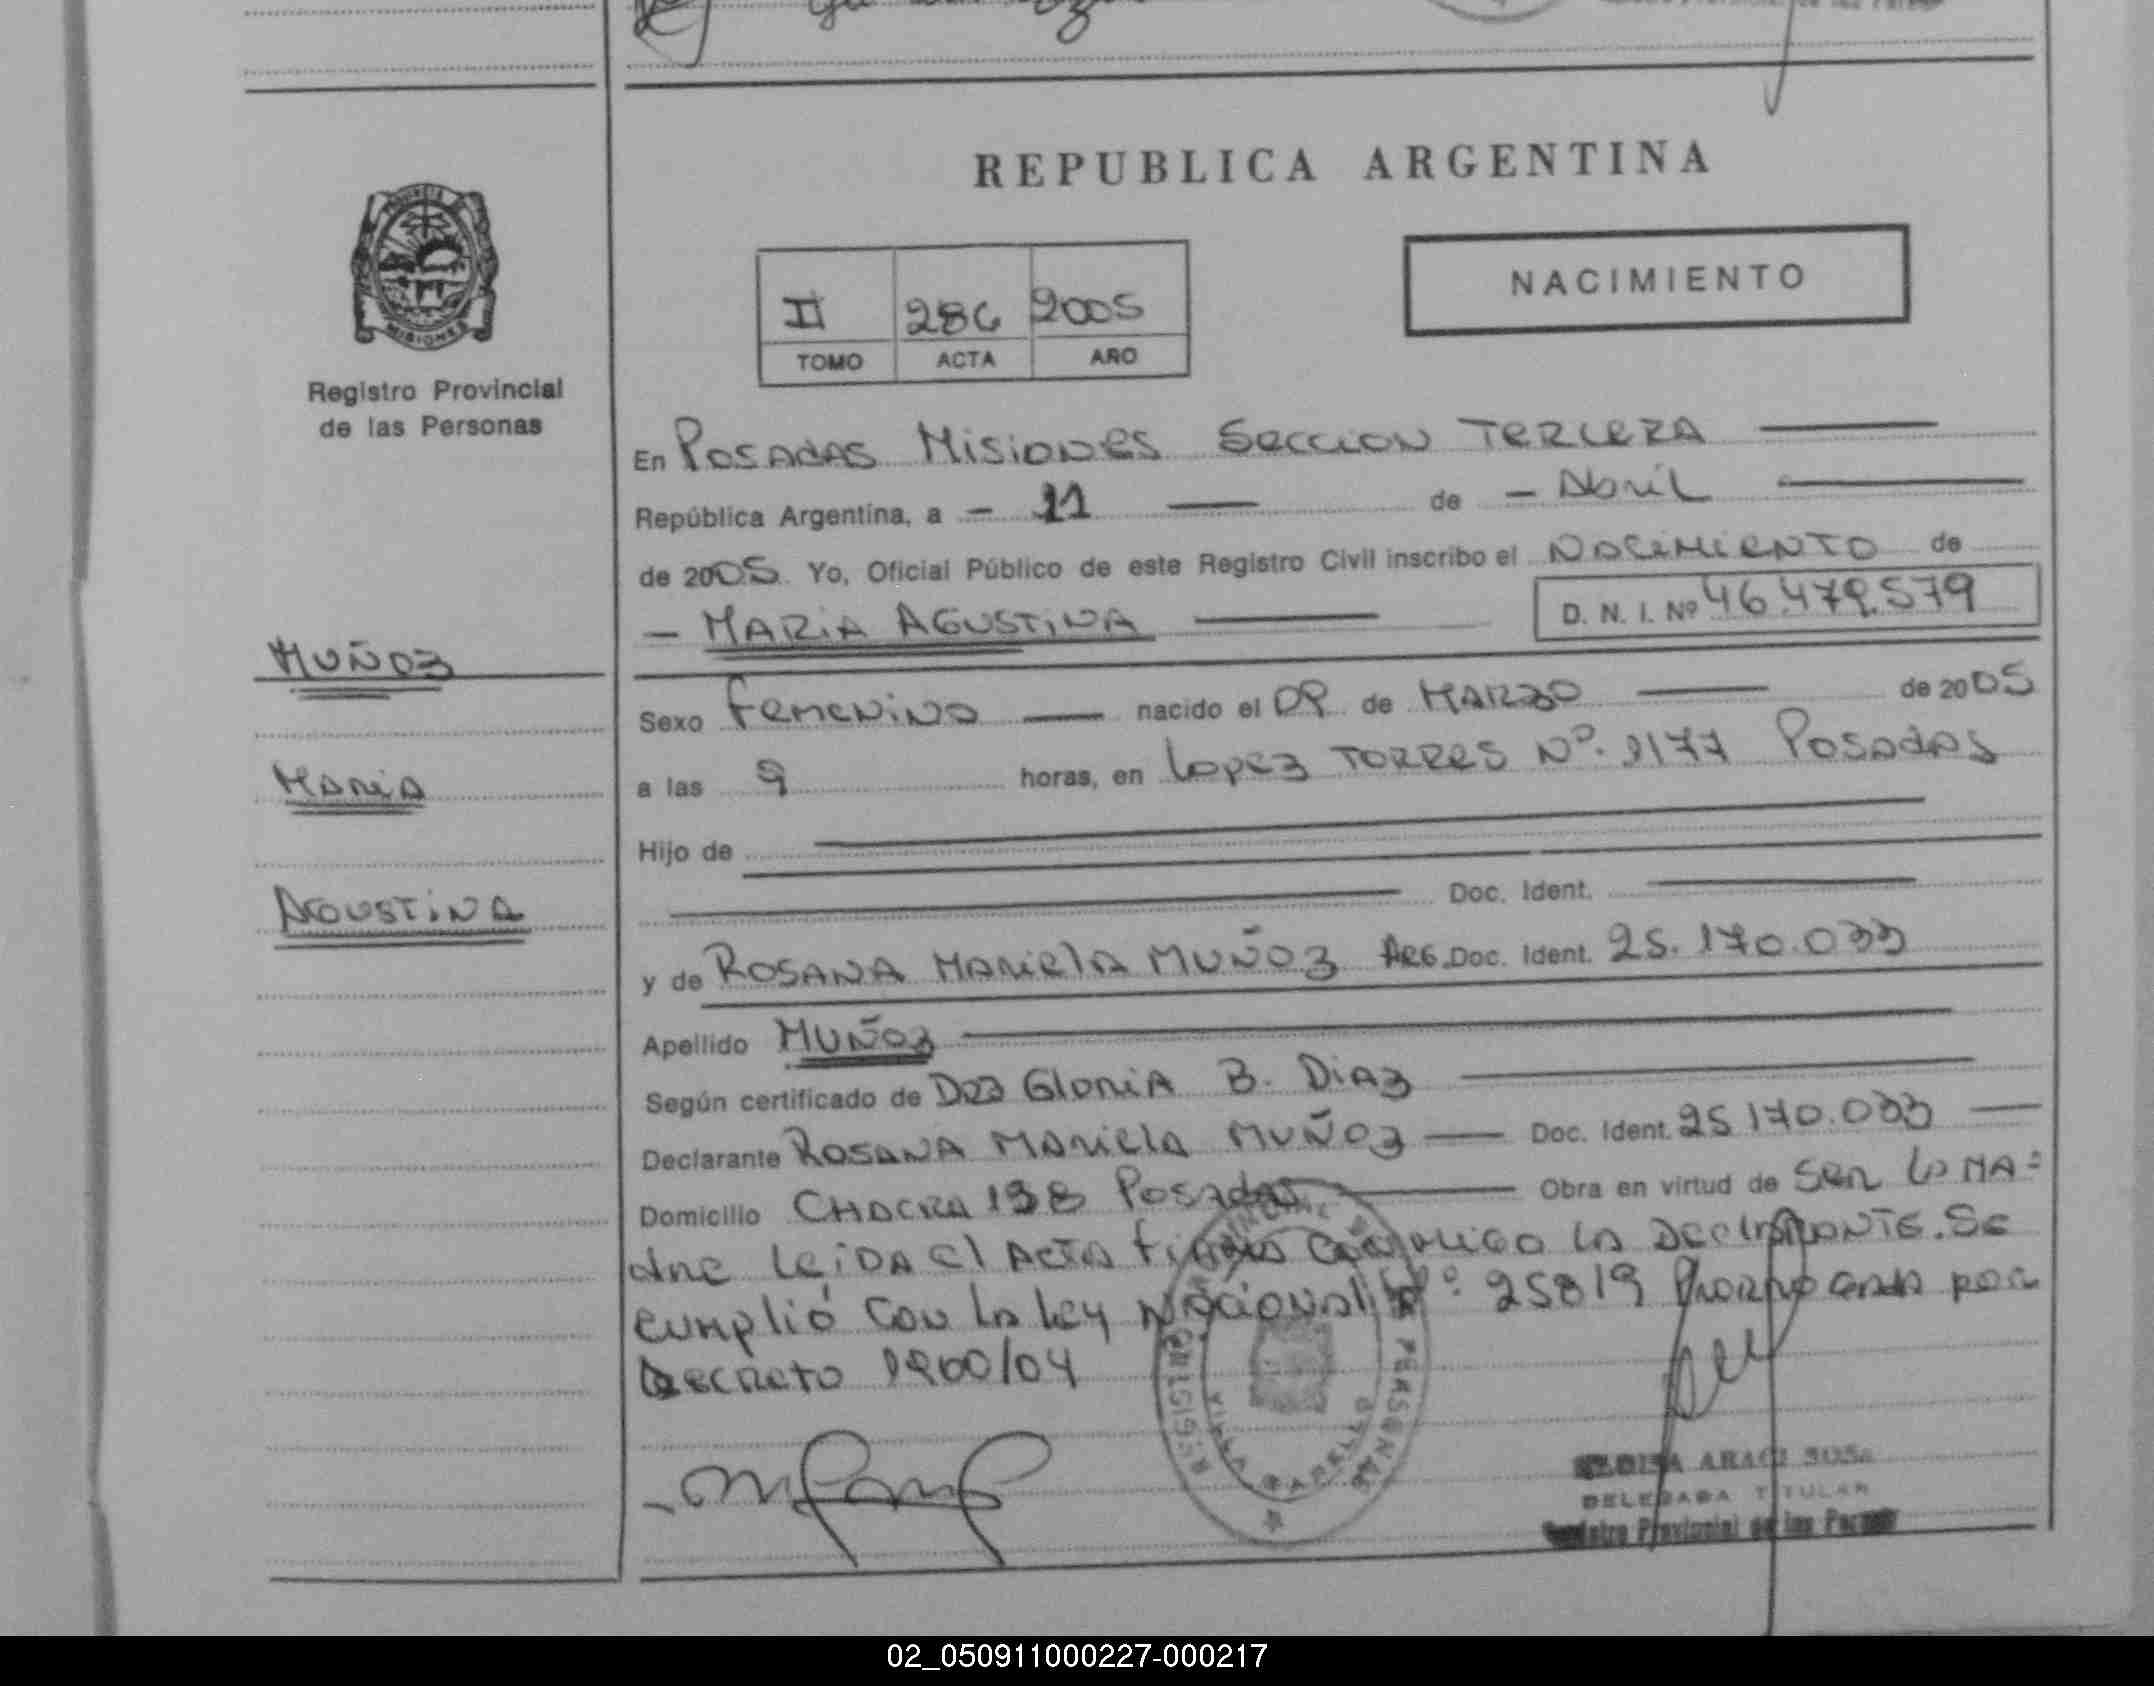 REPUBLICA ARGENTINA
NACIMIENTO
II 286 2005
TOMO ACTA AÑO
PROVINCIA
MISIONES
Registro Provincial
de las Personas
En Posadas Misiones Seccion Tercera
República Argentina, a - 11 de - Abril
de 2005 Yo, Oficial Público de este Registro Civil inscribo el Nacimiento de
- MARIA AGUSTINA D. N. I. Nº 46.479.579
MUÑOZ
MARIA
AGUSTINA
Sexo Femenino nacido el 09 de MARZO de 2005
a las 9 horas, en Lopez TORRES Nº. 1177 Posadas
Hijo de
Doc. Ident.
y de ROSANA MARIELA MUÑOZ ARG. Doc. Ident. 25.170.033
Apellido MUÑOZ
Según certificado de Dra GLORIA B. DIAZ
Declarante ROSANA MARIELA MUÑOZ Doc. Ident. 25 170.033
Domicilio CHACRA 138 Posadas Obra en virtud de Ser la MA=
dre Leida el ACTA firma conmigo la Declarante. Se
cumplió con la Ley Nacional Nº: 25819 Prorrogada por
Decreto 1900/04
VILLA
PERSONAS
ARACI SOSA
DELEGADA TITULAR
Registro Provincial de las Person
02_050911000227-000217